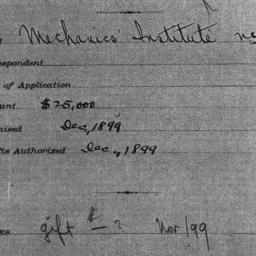 Mechanics' Institute
espondent
of Application
unt $25,000
nised Dec, 1899
ts Authorized Dec, 1899
gift — ? Nov/99